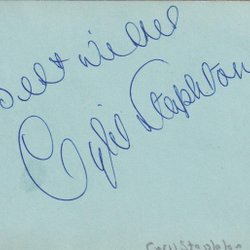 Best wishes
Cyril Stapleton
Cyril Stapleton